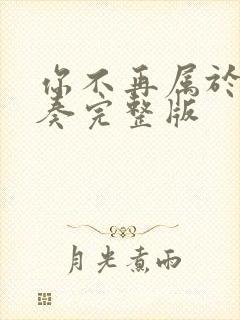 你不再属於
奏完整版
月光煮雨